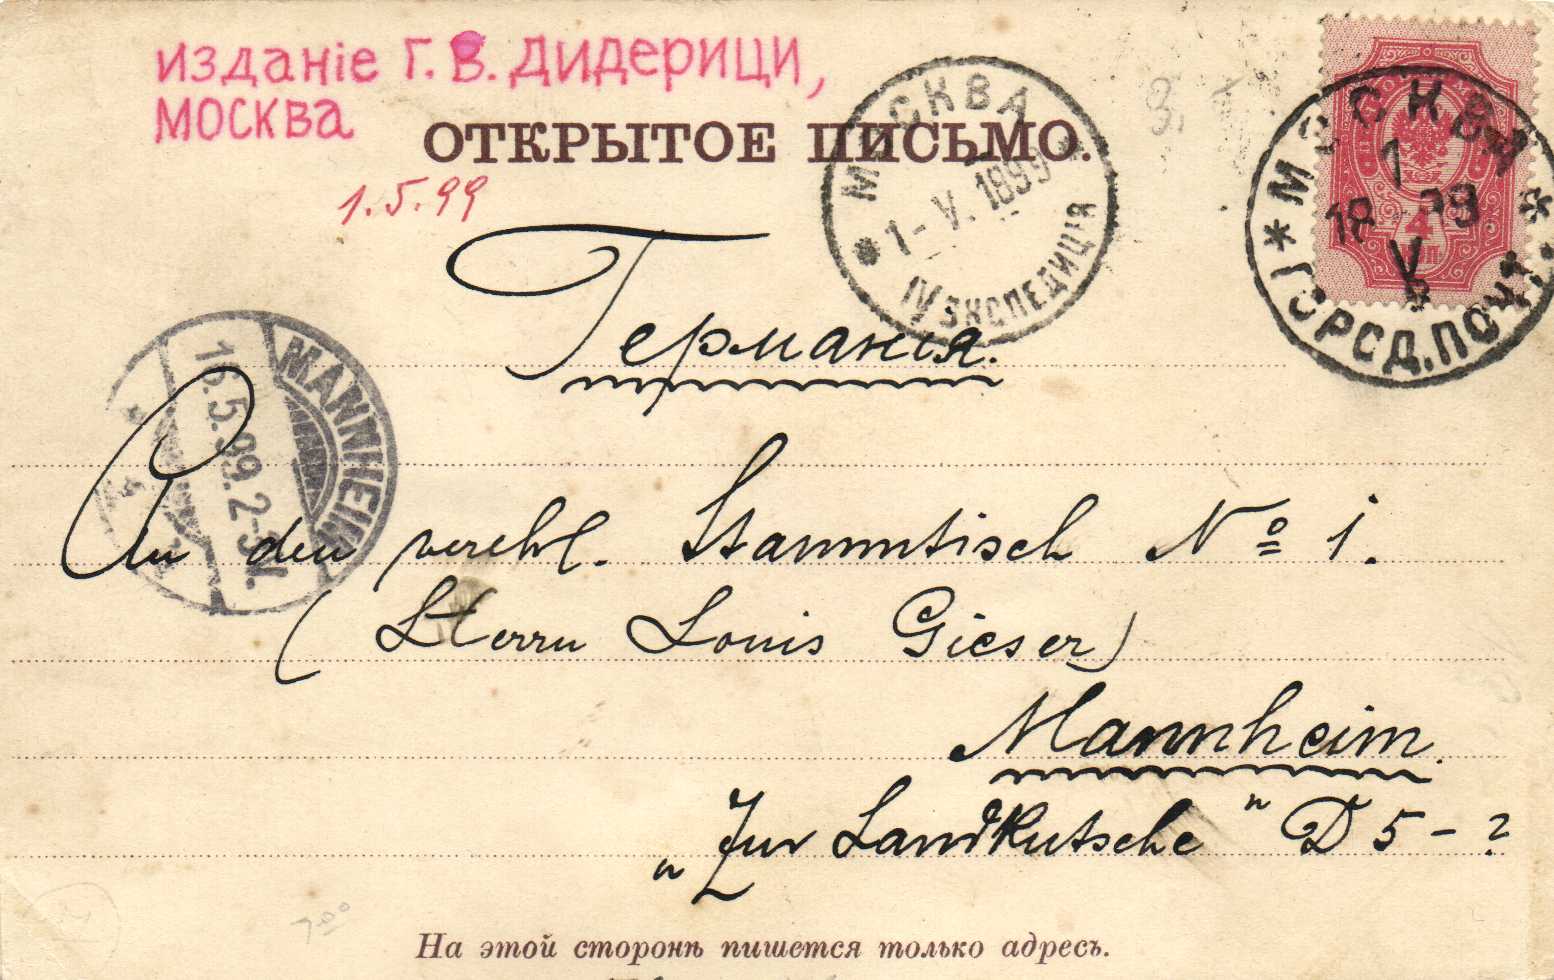 изданiе Г. В. Дидерици,
Москва
ОТКРЫТОЕ ПИСЬМО.
1.5.99
МОСКВА
1-V.1899
IV ЭКСПЕДИЦІЯ
МОСКВА
1
18 99
V
ГОРОД. ПОЧТ.
4
Германія.
MANNHEIM
16.5.99.2-3N.
An den verehl. Stammtisch No 1.
(Herrn Louis Gieser)
Mannheim.
„Zur Landkutsche" D 5 - ?
На этой сторонѣ пишется только адресъ.